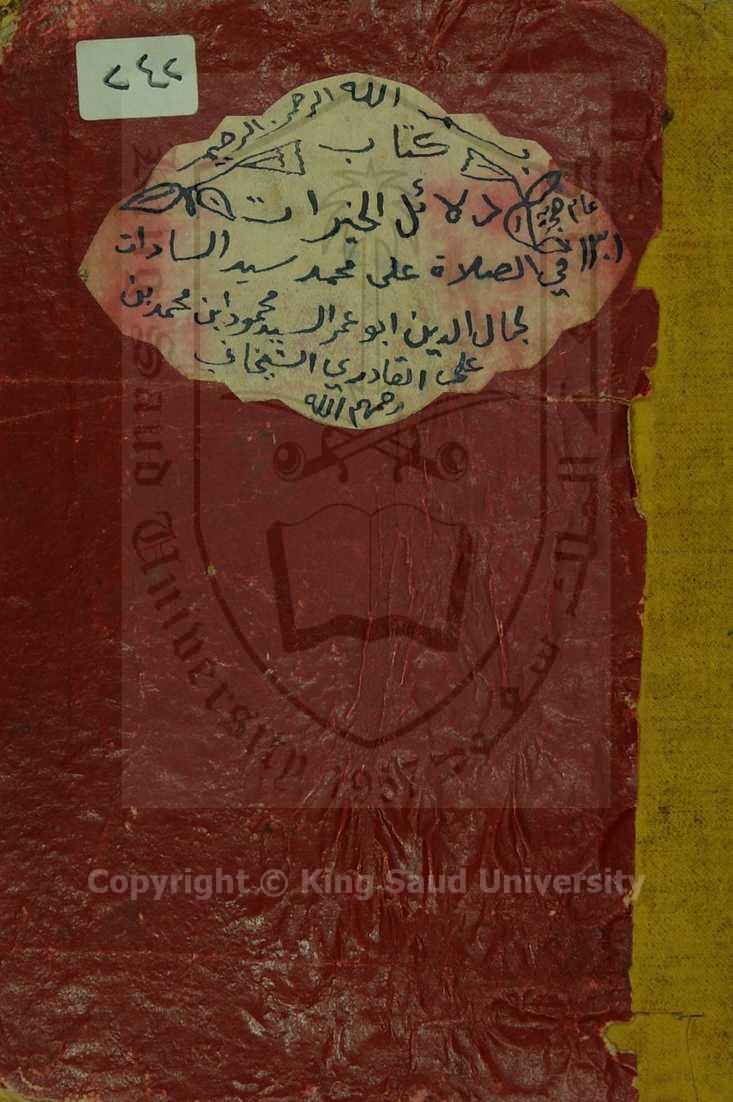 ٧٤٢
بسم الله الرحمن الرحيم
كتاب
دلائل الخيرات
عام هجرية
١٣٠١
في الصلاة على محمد سيد السادات
لجمال الدين ابو عمر السيد محمود ابن محمد بن
على القادري
رحمهم الله
King Saud University
1957
Copyright © King Saud University